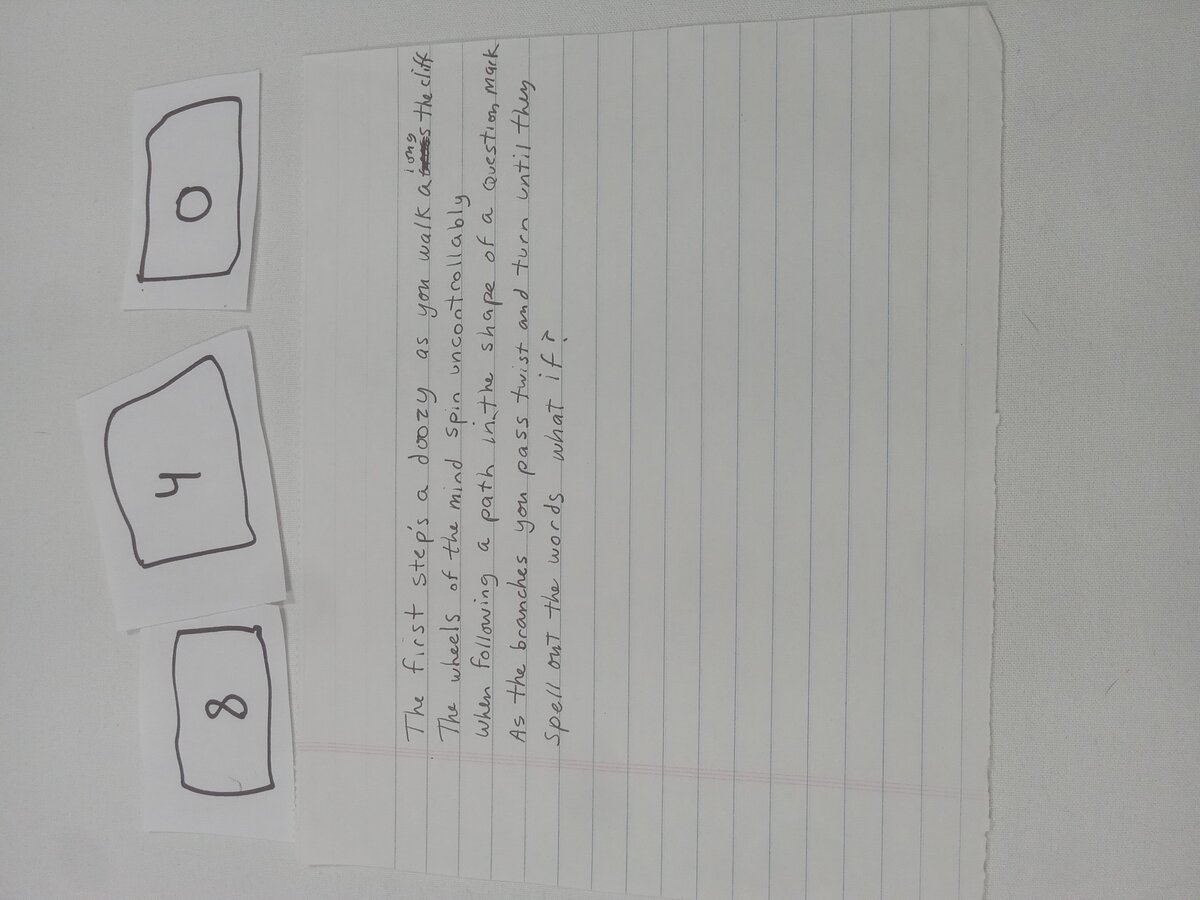 8 4 0
The first step's a doozy as you walk along the cliff
The wheels of the mind spin uncontrollably
when following a path in the shape of a question mark
As the branches you pass twist and turn until they
Spell out the words what if?